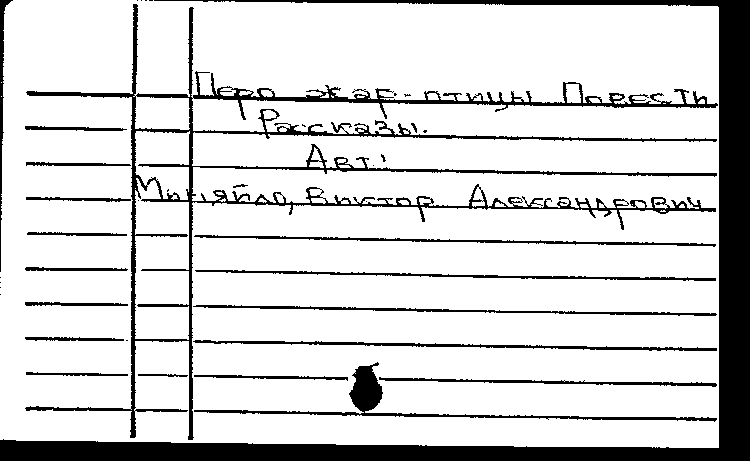 Перо жар-птицы Повесть
Рассказы.
Авт:
Миняйло, Виктор Александрович